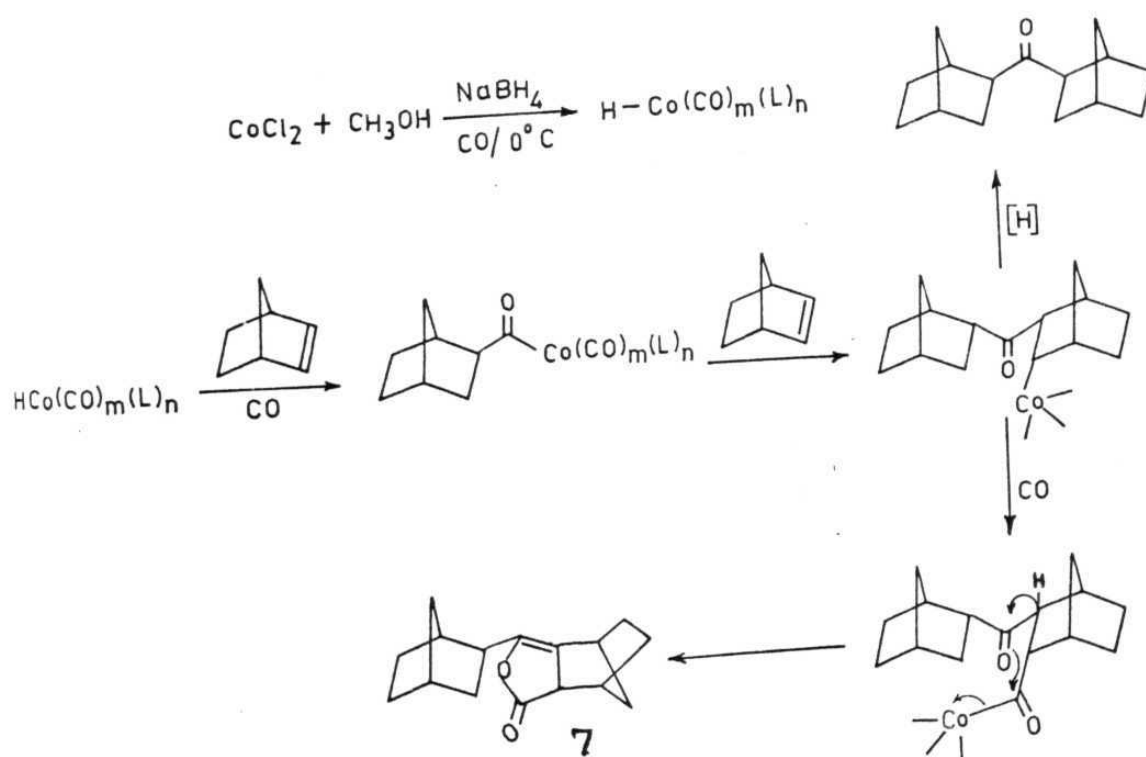 CoCl₂ + CH₃OH NaBH₄ CO/0°C H-Co(CO)m(L)n
O
[H]
HCo(CO)m(L)n CO
O
Co(CO)m(L)n
O
Co
CO
H
O
Co
O
O
O
7